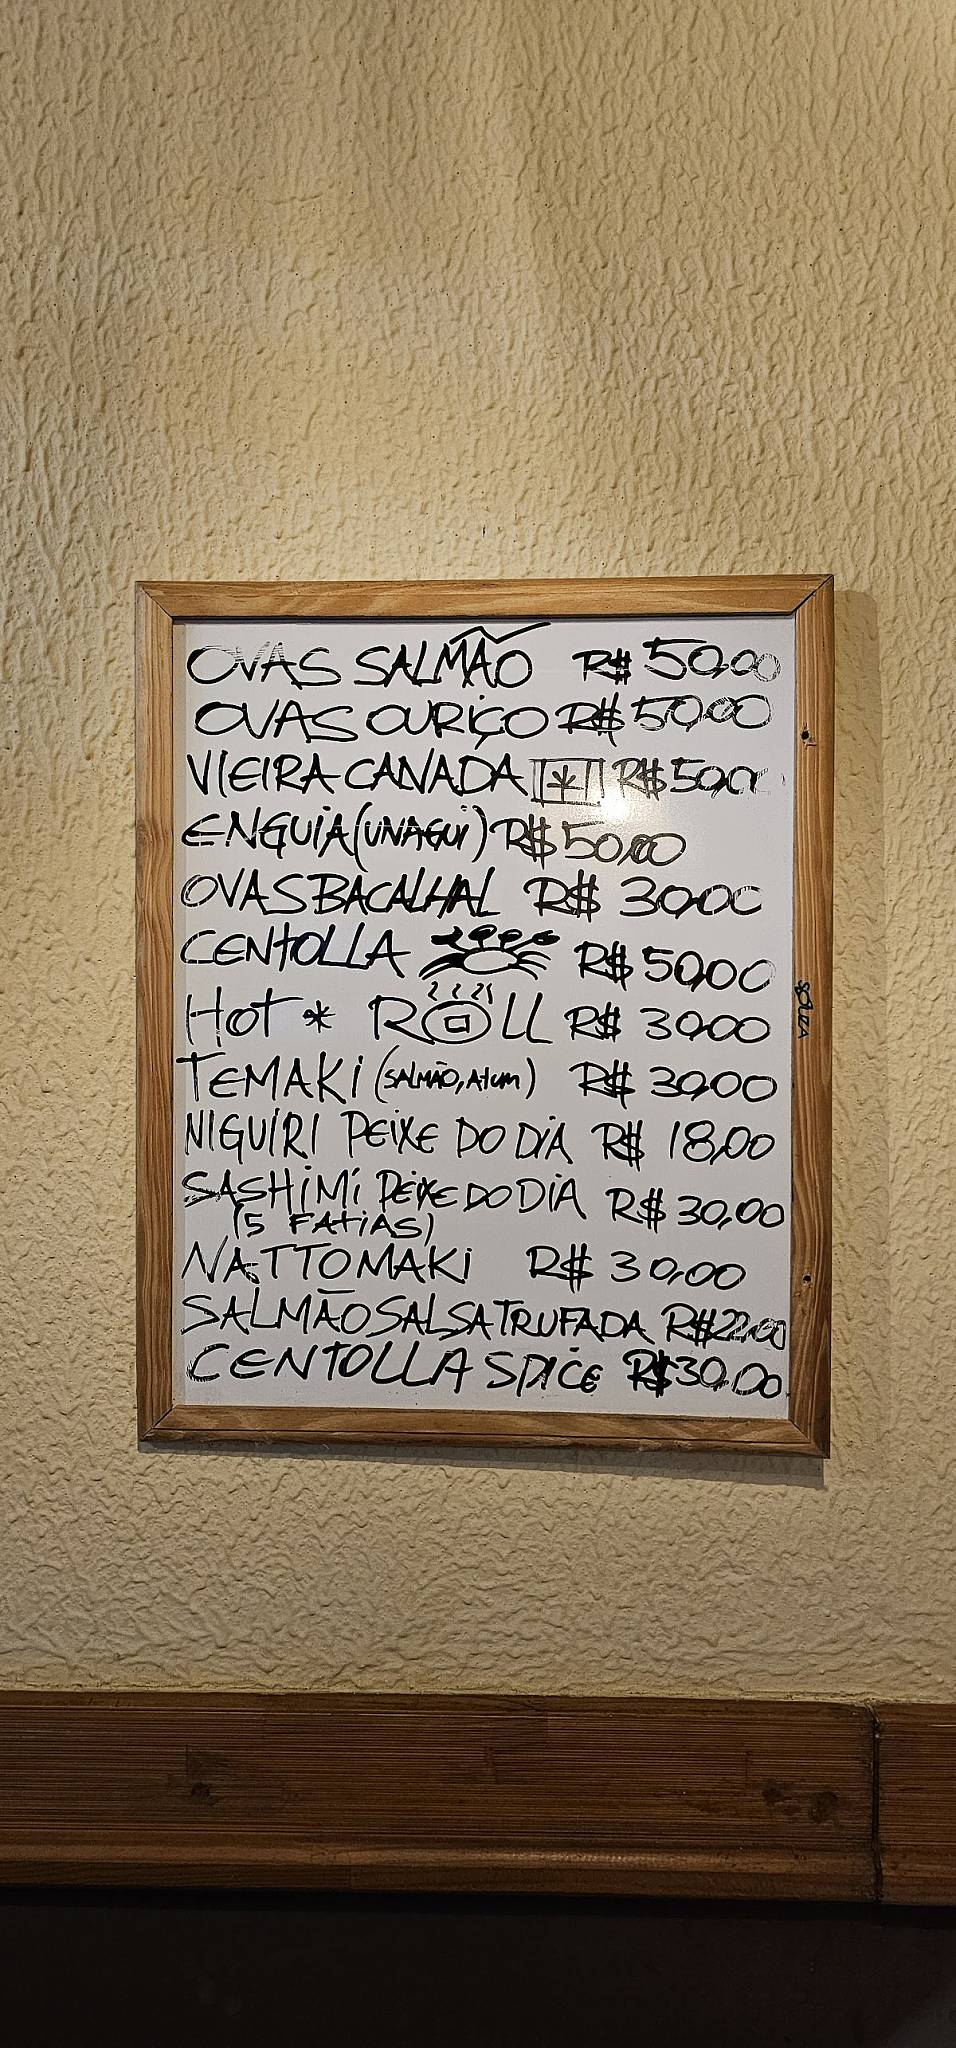 OVAS SALMÃO R$ 50,00
OVAS OURIÇO R$ 50,00
VIEIRA CANADA R$ 50,00
ENGUIA (UNAGUI) R$ 50,00
OVAS BACALHAL R$ 30,00
CENTOLLA R$ 50,00
HOT * ROLL R$ 30,00
TEMAKI (SALMÃO, ATUM) R$ 30,00
NIGUIRI PEIXE DO DIA R$ 18,00
SASHIMI PEIXE DO DIA R$ 30,00
(5 FATIAS)
NATTOMAKI R$ 30,00
SALMÃO SALSA TRUFADA R$ 22,00
CENTOLLA SPICE R$ 30,00